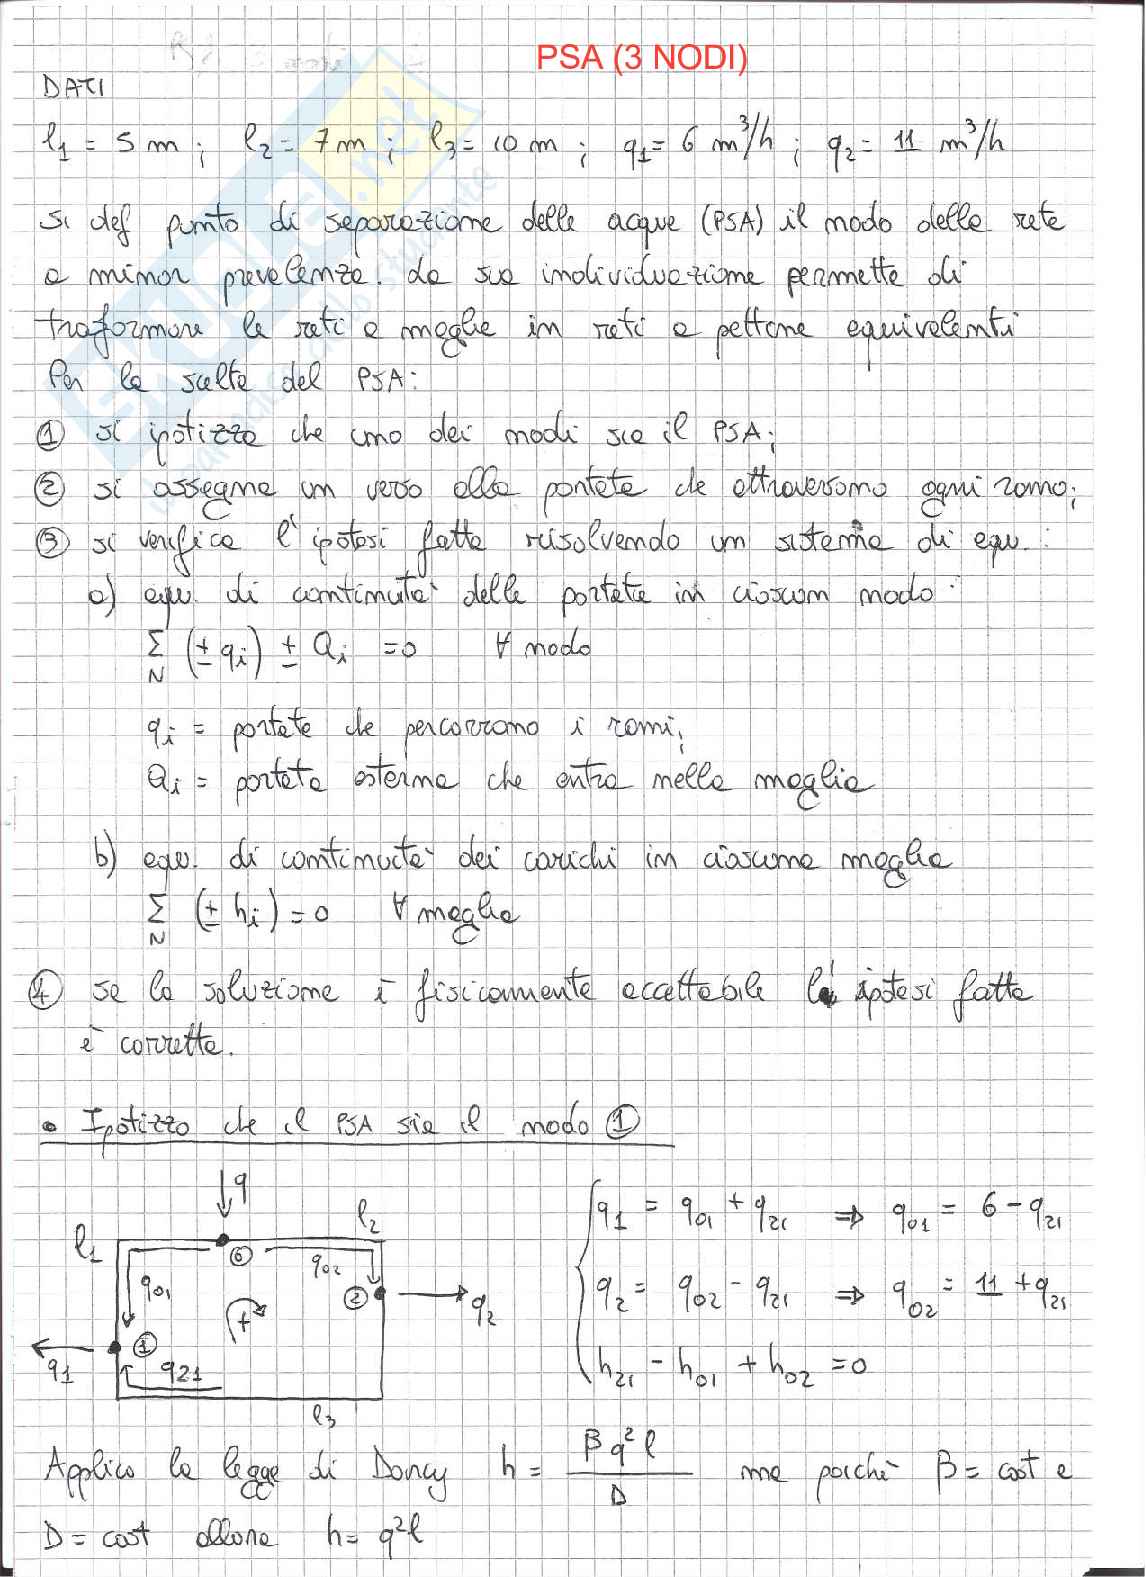 PSA (3 NODI)
DATI
l1 = 5 m ; l2 = 7 m ; l3 = 10 m ; q1 = 6 m³/h ; q2 = 11 m³/h
si def punto di separazione delle acque (PSA) il nodo della rete
a minor prevalenza. La sua individuazione permette di
traformare le reti a maglie in reti a pettine equivalenti
Per la scelta del PSA:
① si ipotizza che uno dei nodi sia il PSA;
② si assegna un verso alla portata che attraversano ogni ramo;
③ si verifica l'ipotesi fatta risolvendo un sistema di equ. :
a) equ. di continuità delle portate in ciascun nodo:
Σ (± qi) ± Qi = 0 ∀ nodo
N
qi = portate che percorrono i rami;
Qi = portata esterna che entra nella maglia
b) equ. di continuità dei carichi in ciascuna maglia
Σ (± hi) = 0 ∀ maglia
N
④ se la soluzione è fisicamente accettabile l' ipotesi fatta
è corretta.
• Ipotizzo che il PSA sia il nodo ①
q
l1
l2
⓪
q01
q02
②
q2
+
①
q1
q21
l3
q1 = q01 + q21 ⇒ q01 = 6 - q21
q2 = q02 - q21 ⇒ q02 = 11 + q21
h21 - h01 + h02 = 0
Applico la legge di Darcy h = β q² l / D ma poichè β = cost e
D = cost allora h = q² l
SKUOLA.net